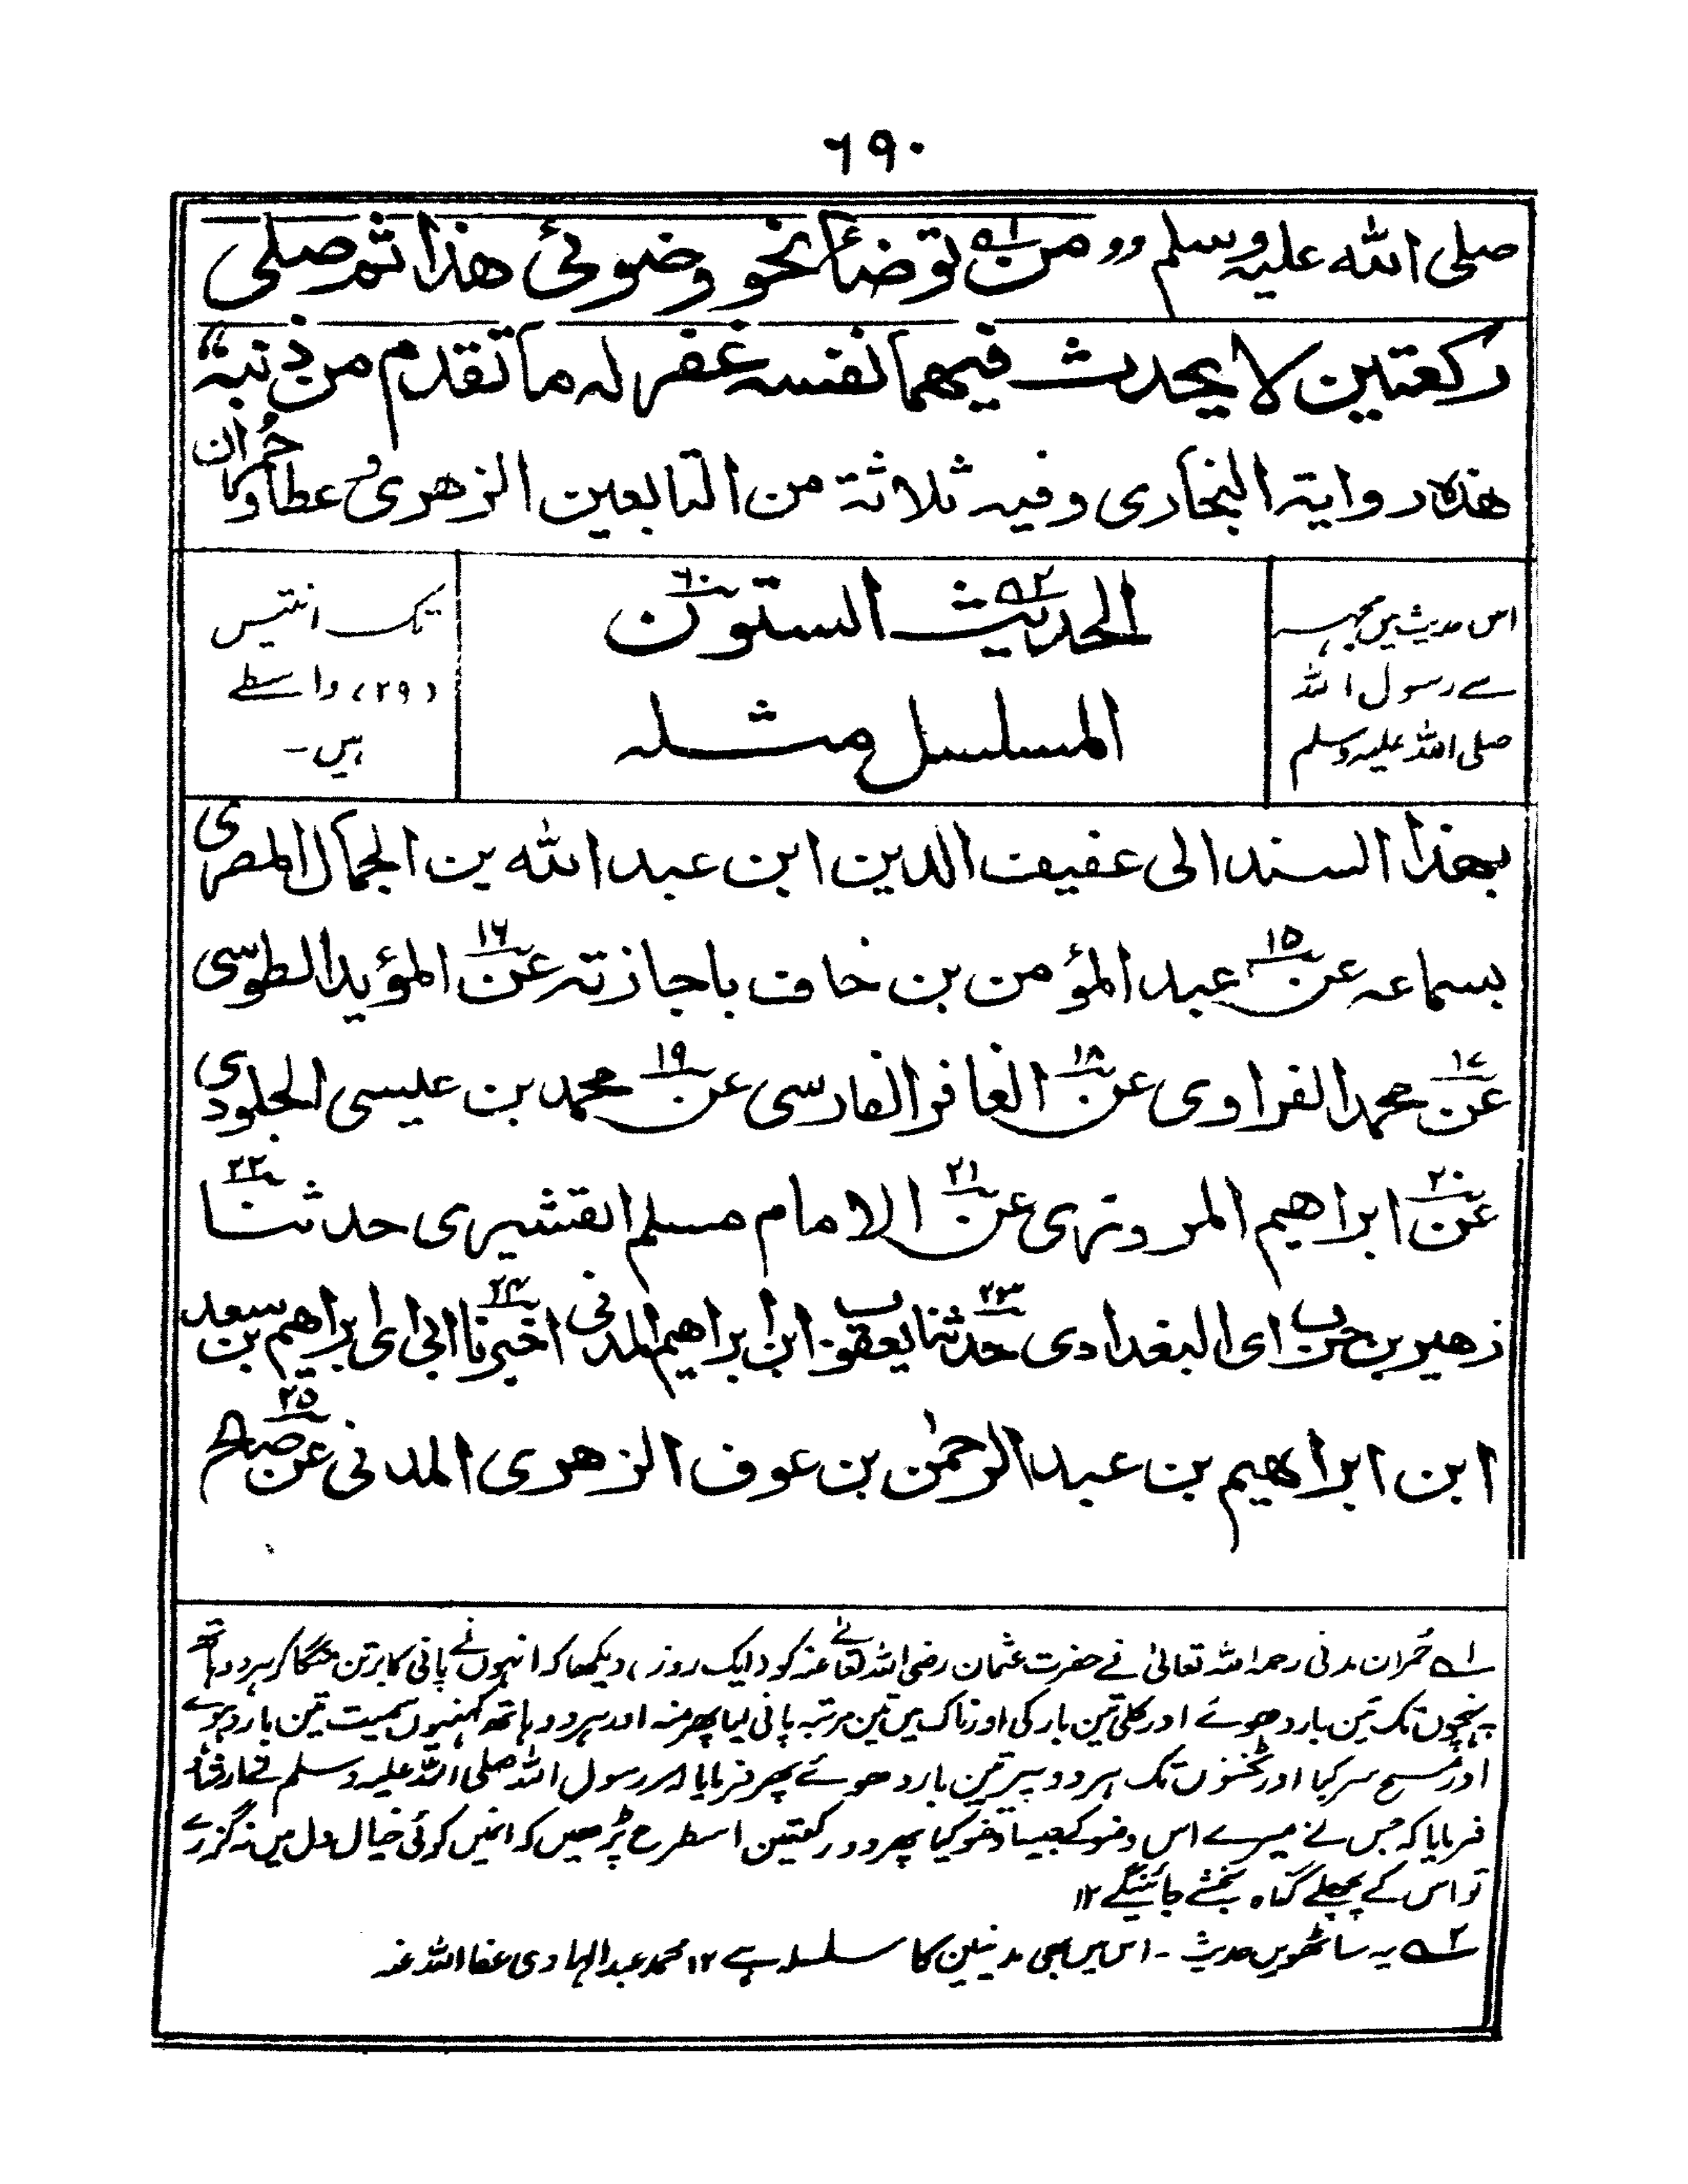 ٦٩٠
صلی اللہ علیہ وسلم ”من لہ۱ توضأ نحو وضوئی هذا ثم صلی
رکعتین لا یحدث فیهما نفسه غفر له ما تقدم من ذنبه“
هذه روایة البخاری وفیه ثلاثة من التابعین الزهری وعطاء وحُمران
اس حدیث میں مجھ سے
سے رسول اللہ
صلی اللہ علیہ وسلم
الحدیث ۲ الستون ٦٠
المسلسل مثله
تک انتیس
(۲۹) واسطے
ہیں۔
بهذا السند الی عفیف الدین ابن عبد الله بن الجمال المصری
بسماعه عن ١٥ عبد المؤمن بن خلف باجازته عن ١٦ المؤید الطوسی
عن ١٧ محمد الفراوی عن ١٨ الغافر الفارسی عن ١٩ محمد بن عیسی الجلودی
عن ٢٠ ابراهیم المروزی عن ٢١ الامام مسلم القشیری حدثنا ٢٢
زهیر بن حرب ای البغدادی حدثنا ٢٣ یعقوب ابن ابراهیم المدنی اخبرنا ٢٤ ابی ای ابراهیم بن سعد بن
ابن ابراهیم بن عبد الرحمٰن بن عوف الزهری المدنی عن ٢٥ صالح
لہ۱ حُمران مدنی رحمہ اللہ تعالیٰ نے حضرت عثمان رضی اللہ تعالےٰ عنہ کو (ایک روز) دیکھا کہ انہوں نے پانی کا برتن منگا کر ہر دو ہاتھ
پہنچوں تک تین بار دھوئے اور کلی تین بار کی اور ناک میں تین مرتبہ پانی لیا پھر منہ اور ہر دو ہاتھ کہنیوں سمیت تین بار دھوئے
اور مسح سر کیا اور ٹخنوں تک ہر دو پیر تین بار دھوئے پھر فرمایا اور رسول اللہ صلی اللہ علیہ وسلم نے ارشاد
فرمایا کہ جس نے میرے اس وضو کے جیسا وضو کیا پھر دو رکعتین اسطرح پڑھیں کہ انمیں کوئی خیال دل میں نہ گزرے
تو اس کے پچھلے گناہ بخشے جائینگے ۱۲
لہ۲ یہ ساٹھویں حدیث ۔ اس میں بھی مدنیین کا سلسلہ ہے ۱۲ محمد عبد الہادی عفا اللہ عنہ